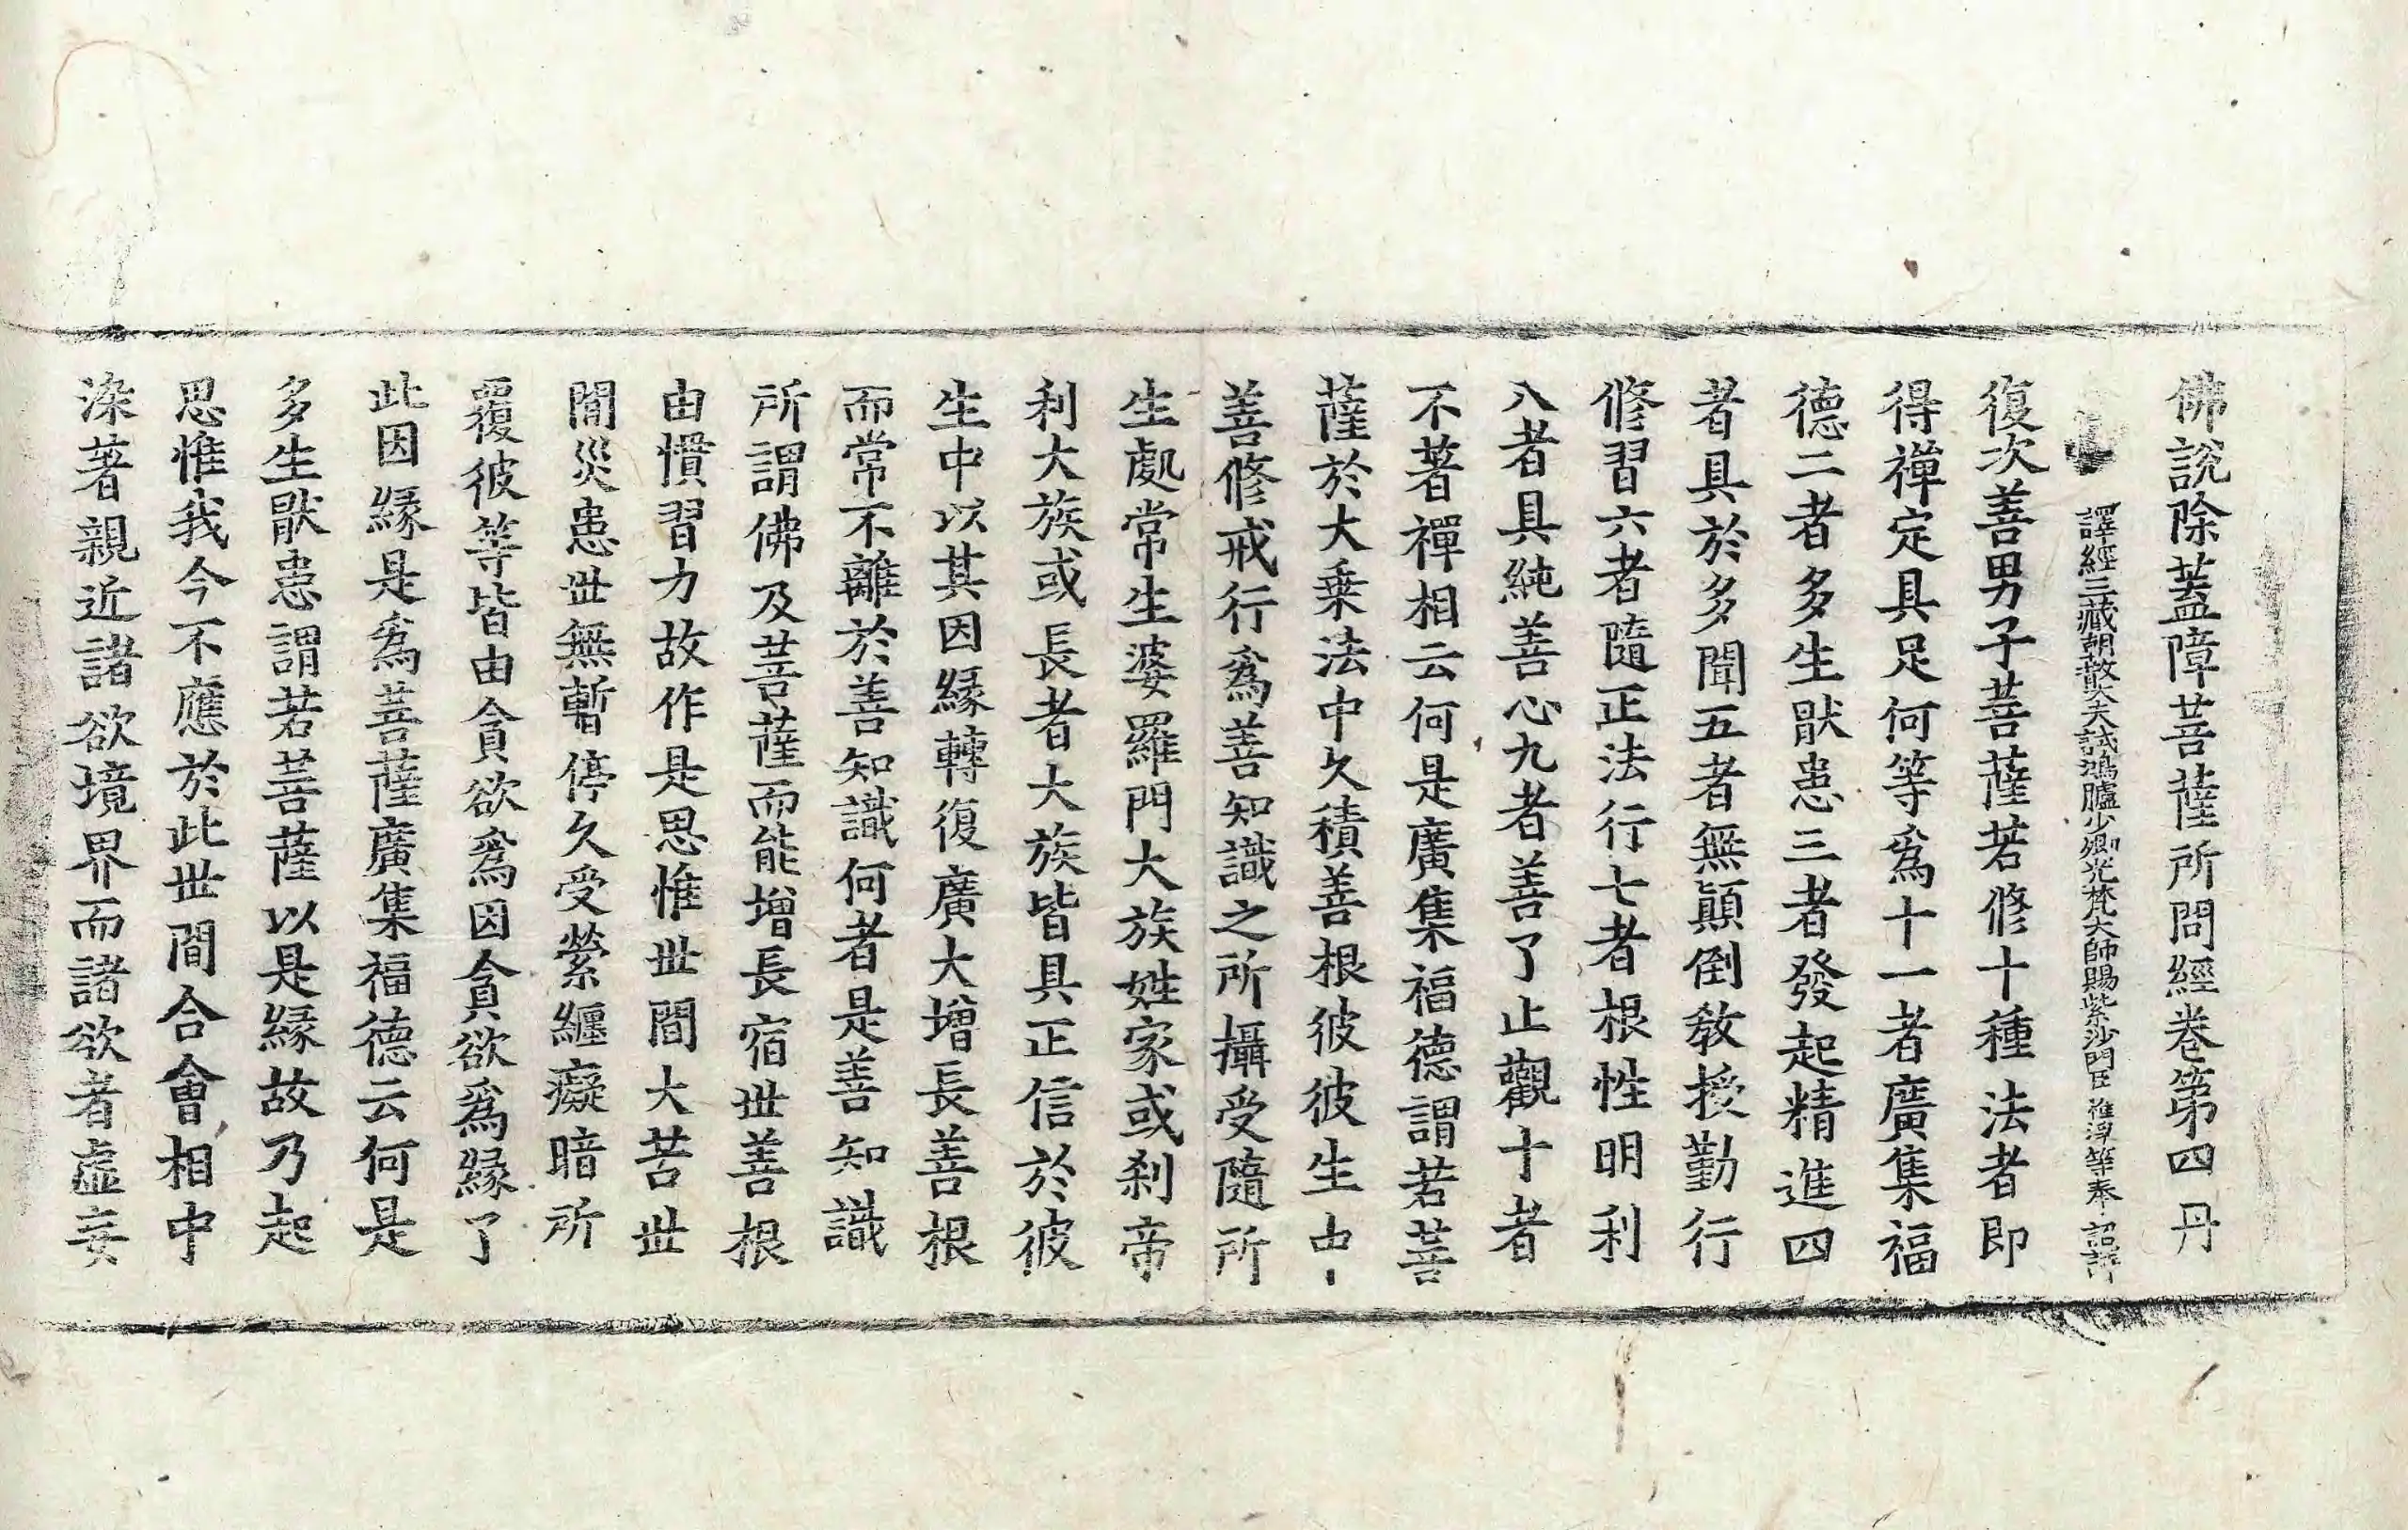 佛說除蓋障菩薩所問經卷第四 丹
譯經三藏朝散大夫試鴻臚少卿光梵大師賜紫沙門臣惟淨等奉 詔譯
復次善男子菩薩若修十種法者即
得禪定具足何等爲十一者廣集福
德二者多生猒患三者發起精進四
者具於多聞五者無顛倒教授勤行
修習六者隨正法行七者根性明利
八者具純善心九者善了止觀十者
不著禪相云何是廣集福德謂若菩
薩於大乗法中久積善根彼彼生中
善修戒行爲善知識之所攝受隨所
生處常生婆羅門大族姓家或刹帝
利大族或長者大族皆具正信於彼
生中以其因緣轉復廣大增長善根
而常不離於善知識何者是善知識
所謂佛及菩薩而能增長宿世善根
由慣習力故作是思惟世間大苦世
間災患世無暫停久受縈纏癡暗所
覆彼等皆由貪欲爲因貪欲爲緣了
此因緣是爲菩薩廣集福德云何是
多生猒患謂若菩薩以是緣故乃起
思惟我今不應於此世間合會相中
染著親近諸欲境界而諸欲者虛妄